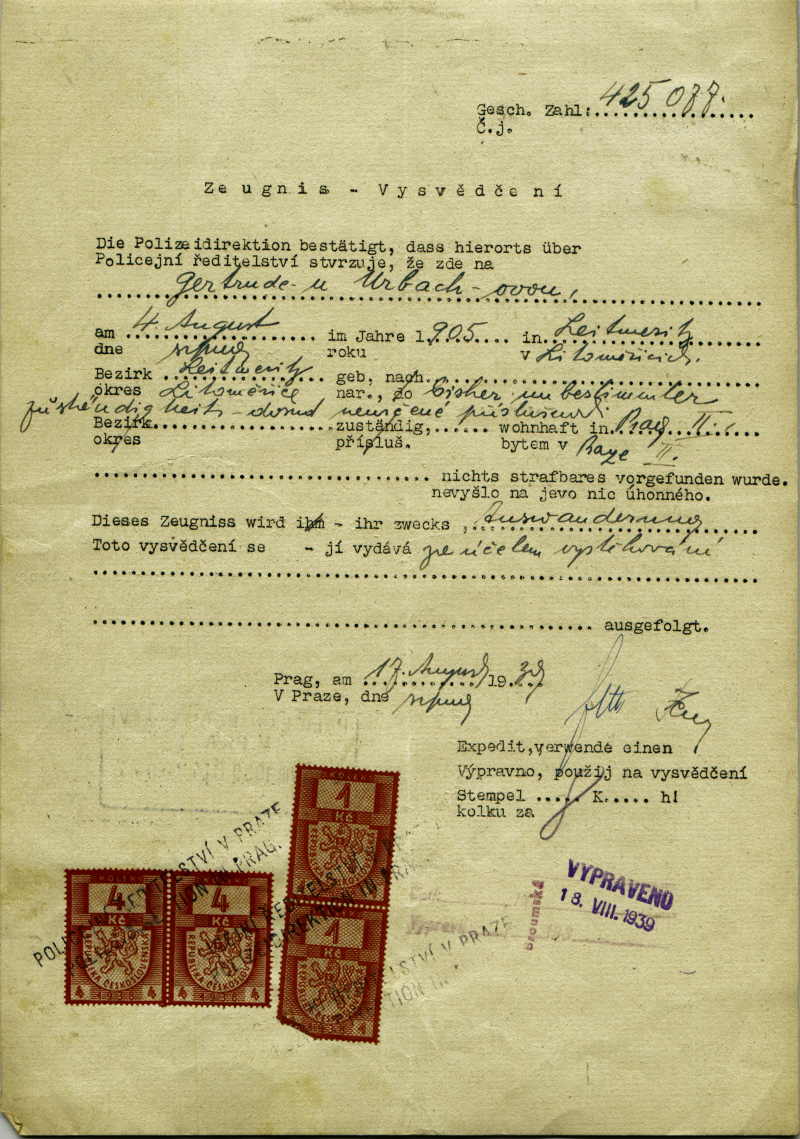 Gesch. Zahl: 425 087.
Č.j.
Zeugnis - Vysvědčení
Die Polizeidirektion bestätigt, dass hierorts über
Policejní ředitelství stvrzuje, že zde na
Gertrude u Urbach-ovou,
am 4. August im Jahre 1905. in Leitmeritz
dne srpna roku v Litoměřicích.
Bezirk Leitmeritz geb, nach.
okres Litoměřice nar., do bisher unbestimmter
zuständigkeit - dosud neurčené příslušnosti
Bezirk zuständig, wohnhaft in Prag II.
okres přípluš. bytem v Praze II.
nichts strafbares vorgefunden wurde.
nevyšlo na jevo nic úhonného.
Dieses Zeugniss wird ihm - ihr zwecks, Auswanderung
Toto vysvědčení se - jí vydává za účelem vystěhování
ausgefolgt.
Prag, am 17. August 1939
V Praze, dne srpna
Expedit, verwende einen
Výpravno, použij na vysvědčení
Stempel ..... K..... hl
kolku za
KOLEK
1
Kč
REPUBLIKA ČESKOSLOVENSKÁ
4
Kč
4
Kč
REPUBLIKA ČESKOSLOVENSKÁ
REPUBLIKA ČESKOSLOVENSKÁ
4 1938 4
4 1938 4
1
Kč
REPUBLIKA ČESKOSLOVENSKÁ
POLICEJNÍ ŘEDITELSTVÍ V PRAZE
POLIZEIDIREKTION IN PRAG.
VYPRAVENO
18. VIII. 1939